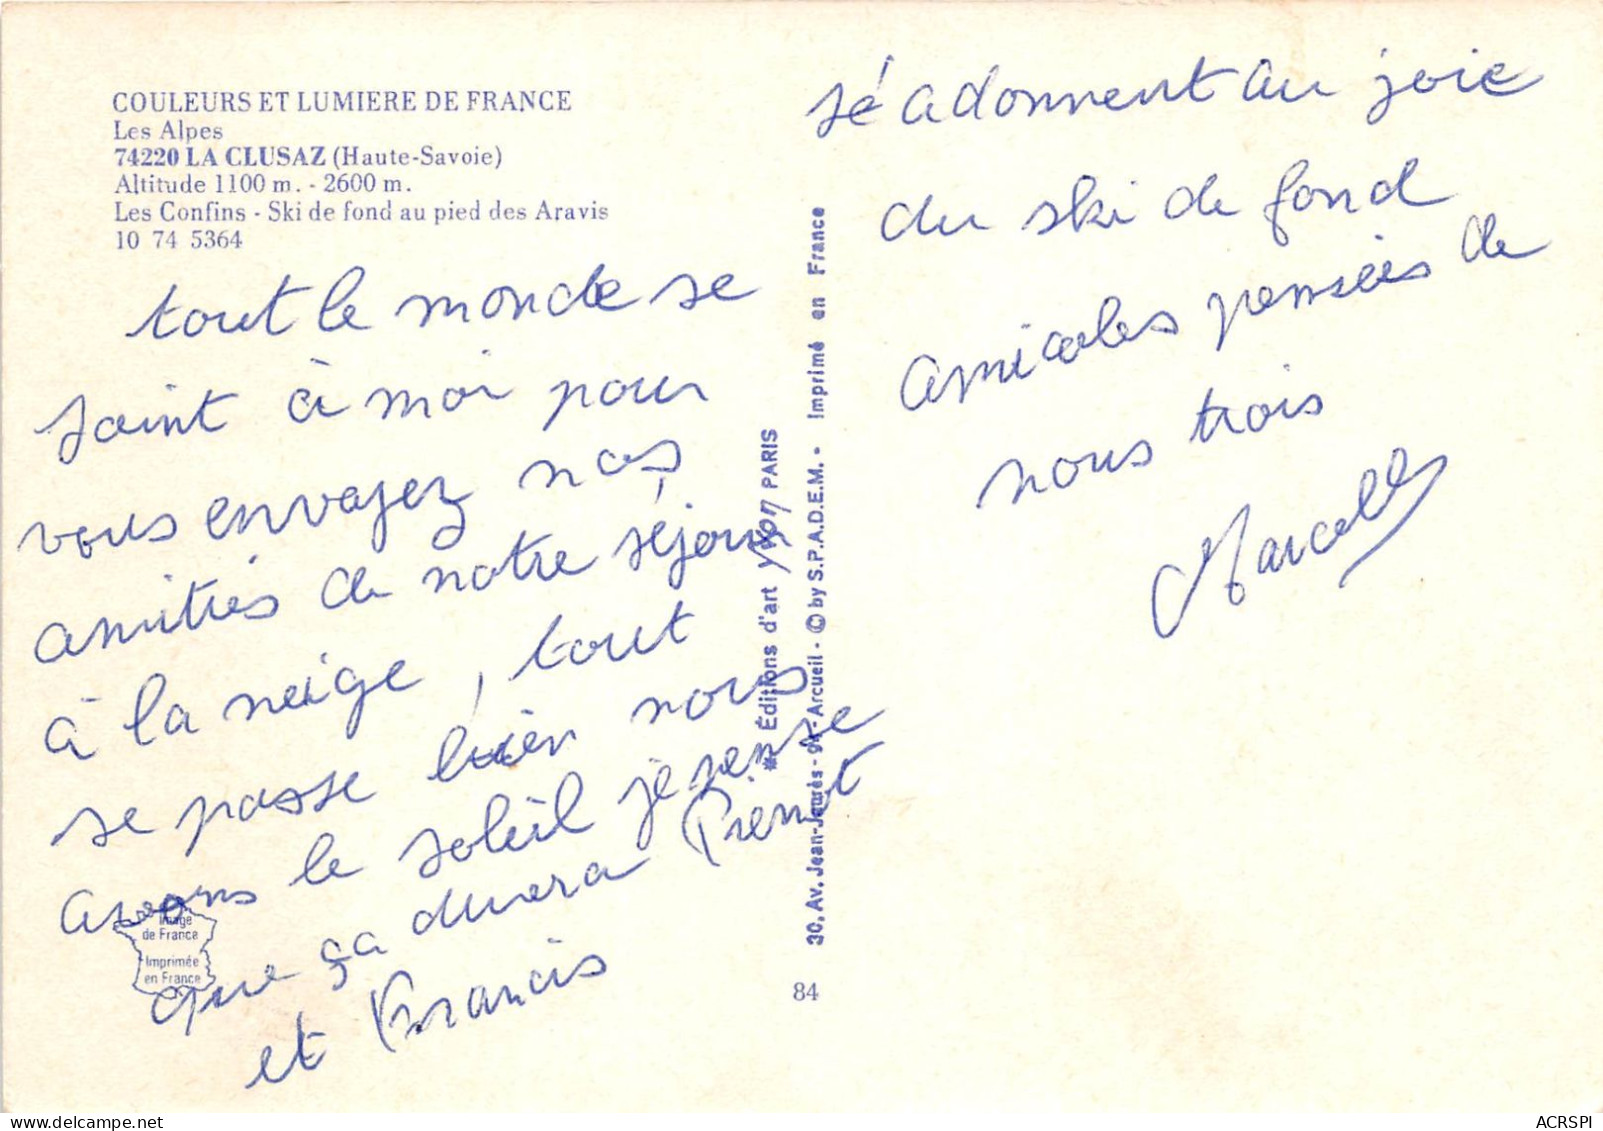 COULEURS ET LUMIERE DE FRANCE
Les Alpes
74220 LA CLUSAZ (Haute-Savoie)
Altitude 1100 m. - 2600 m.
Les Confins - Ski de fond au pied des Aravis
10 74 5364
tout le monde se
joint à moi pour
vous envoyez nos
amitiés de notre séjour
à la neige, tout
se passe bien nous
avons le soleil je pense
que ça durera Pierrot
et Francis
Image
de France
Imprimée
en France
* Éditions d'art yvon PARIS
30, Av. Jean-Jaurès - 94 - Arcueil - © by S.P.A.D.E.M. - Imprimé en France
84
sé adonnent au joie
du ski de fond
amicales pensées de
nous trois
Marcelle
ACRSPI